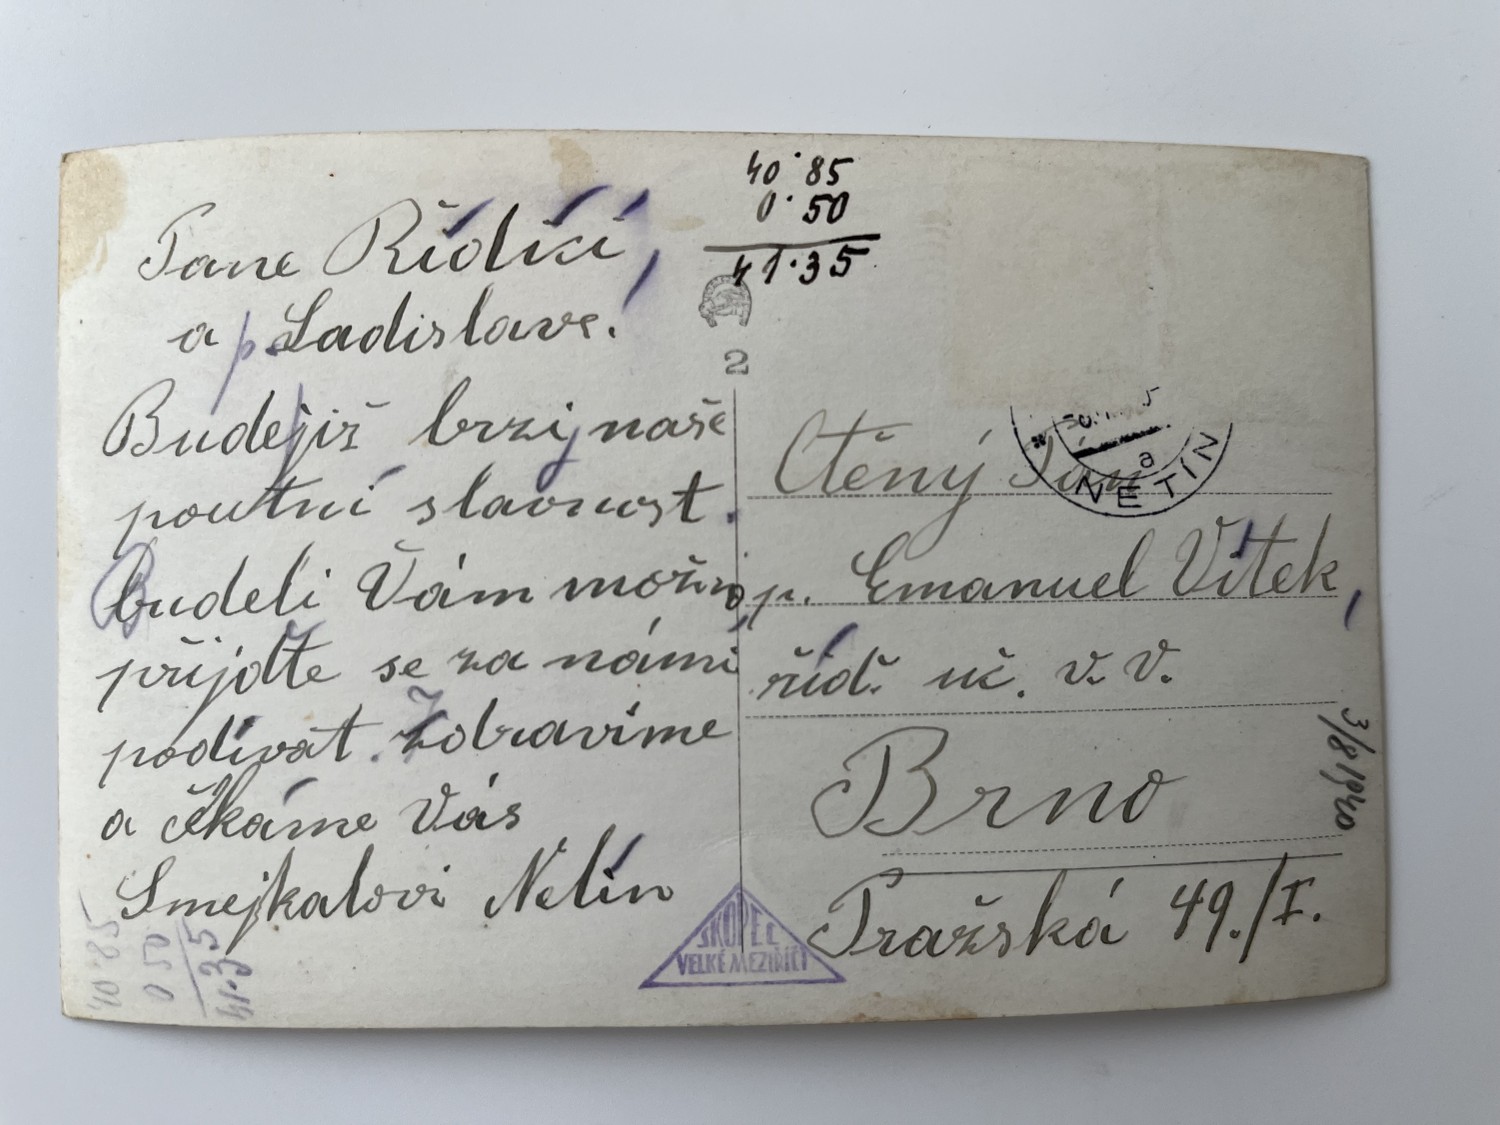 40·85
0·50
41·35
Pane Řídící,
a p. Ladislave!
Budejiž brzy naše
poutní slavnost.
Budeli Vám možno,
přijďte se za námi
podívat. Zdravíme
a čekáme Vás
Smejkalovi Netín
40·85
0 50
41·35
2
NETÍN
a
Ctěný Pán
p. Emanuel Vítek,
říd. uč. v. v.
Brno
Pražská 49./I.
3/8 1940
SKOPEC
VELKÉ MEZIŘÍČÍ